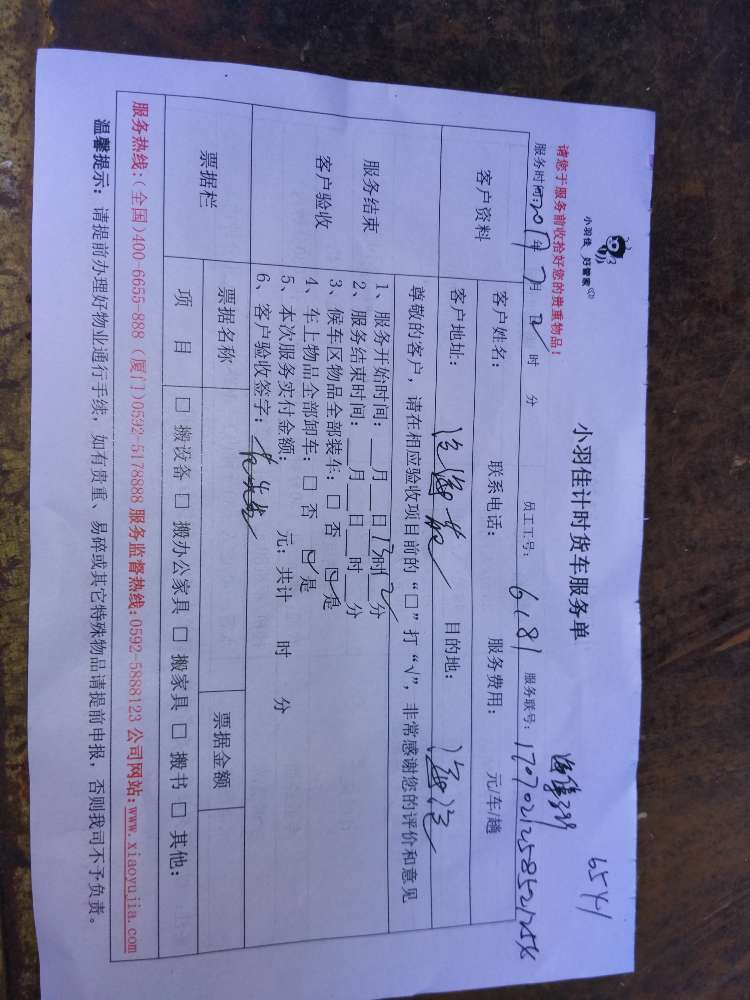 小羽佳 好管家
小羽佳计时货车服务单
6541
请您于服务前收拾好您的贵重物品!
服务时间:2017年7月2日 时 分 员工工号: 6181 服务联号: 17070212585212541
客户资料 客户姓名: 联系电话: 服务费用: 元/车/趟
客户地址: 目的地:
尊敬的客户, 请在相应验收项目前的“□”打“√”, 非常感谢您的评价和意见
服务结束
客户验收
1、服务开始时间: 月 日13时 分
2、服务结束时间: 月 日 时 分
3、候车区物品全部装车: □ 否 ☑ 是
4、车上物品全部卸车: □ 否 ☑ 是
5、本次服务实付金额: 元; 共计 时 分
6、客户验收签字:
票据栏 票据名称 票据金额
项 目 □ 搬设备 □ 搬办公家具 □ 搬家具 □ 搬书 □ 其他:
服务热线:(全国)400-6655-888 (厦门)0592-5178888 服务监督热线:0592-5888123 公司网站:www.xiaoyujia.com
温馨提示: 请提前办理好物业通行手续, 如有贵重、易碎或其它特殊物品请提前申报, 否则我司不予负责。